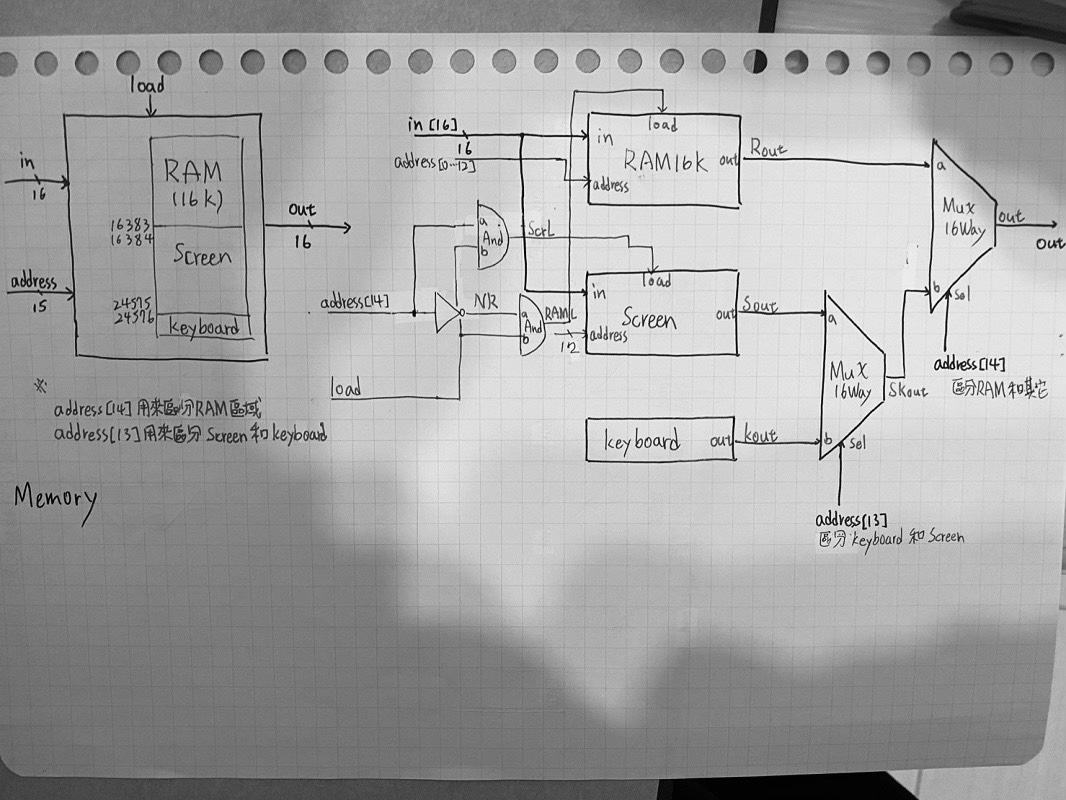 load
in
16
RAM
(16k)
16383
16384
Screen
24575
24576
keyboard
out
16
address
15
※
address[14]用來區分RAM區域
address[13]用來區分 Screen和keyboard
Memory
in [16]
16
address[0...12]
load
in
RAM16k
out
address
Rout
a
And
b
ScrL
address[14]
NR
a
And
b
RAML
12
load
load
in
Screen
out
address
Sout
keyboard
out
kout
a
Mux
16Way
b
sel
Skout
address[13]
區分keyboard和Screen
a
Mux
16Way
b
sel
out
out
address[14]
區分RAM和其它